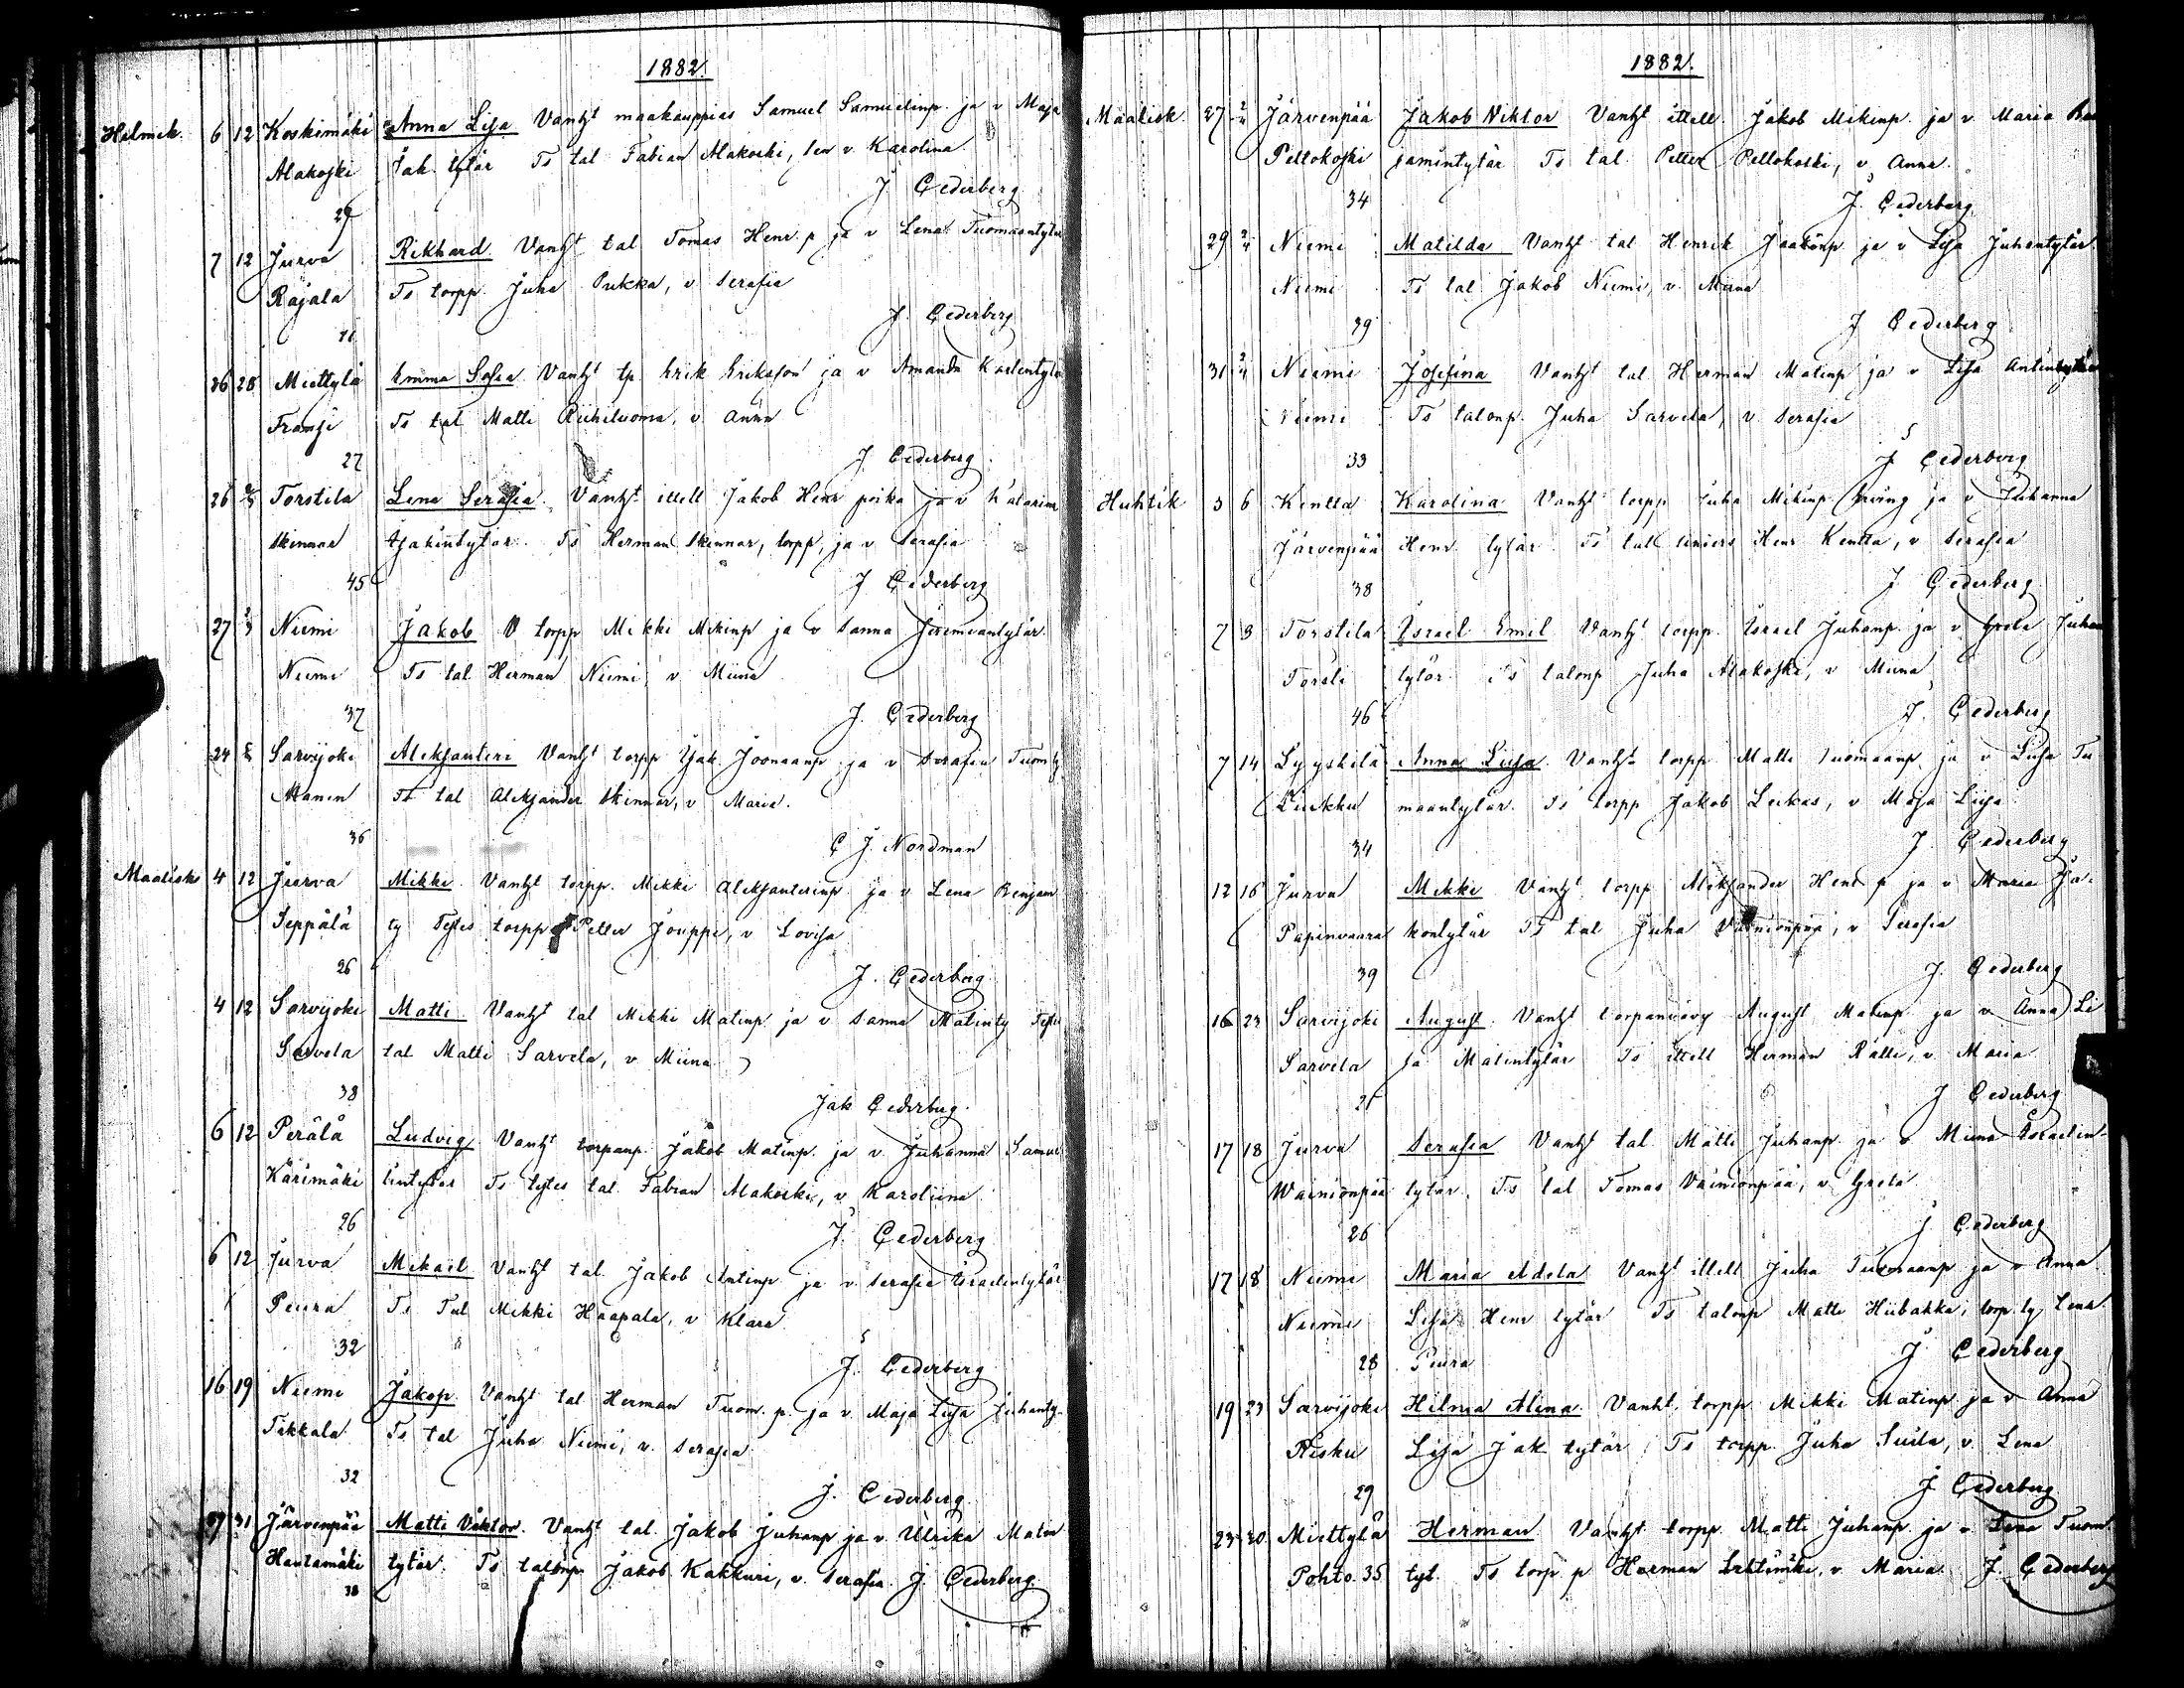 1882.
Helmik. 6 12 Koskimäki Anna Lisa Vanht maakauppias Samuel Samuelinp. ja v Maja
Alakoski Jak. tytär Ts tal Fabian Alakoski, sen v Karolina
29 J Cederberg
7 12 Jurva Rikhard Vanht tal Tomas Henr. p ja v Lena Tuomaantytär
Rajala Ts torpp. Juha Pukka, v Serafia
J. Cederberg
26 28 Miettylä Emma Sofia Vanht tp Erik Eriksson ja v Amanda
Ts tal Matti Riihiluoma, v Anna
27 J. Cederberg
26 Torstila Lena Serafia Vanht ittell Jakob Henr poika ja v
Skinnar Ts Herman Skinnar, torpp, ja v Serafia
45 J Cederberg
27 Niemi Jakob V torpp Mikki Mikinp ja v Sanna
Niemi Ts tal Herman Niemi, v Miina
37 J. Cederberg
24 Sarvijoki Aleksanteri Vanht torpp Joonaanp ja v Serafia Tuom ty
Ts tal Aleksander Skinnar, v Maria.
36 C J. Nordman
Maalisk 4 12 Jurva Mikki Vanht torpp. Mikki Aleksanterinp ja v Lena Benjam
Seppälä ty torpp Petter Jouppi, v Lovisa
26 J. Cederberg
4 12 Sarvijoki Matti Vanht tal Mikki Matinp ja v Sanna Matinty
Sarvela tal Matti Sarvela, v Miina
38 Jak Cederberg.
6 12 Perälä Ludvig Vanht torpanp. Jakob Matinp. ja v Juhanna Samue
Kärimäki lintytär Ts tal Fabian Alakoski, v Karoliina
26 J. Cederberg
6 12 Jurva Mikael Vanht tal. Jakob Antinp ja v Serafia Israelintytär
Peura Ts Tal Mikki Haapala, v Klara
32 J. Cederberg
16 19 Niemi Jakop Vanht tal Herman Tuom. p. ja v. Maja Lisa Juhanty.
Tikkala Ts tal Juha Niemi, v. Serafia
32 J. Cederberg
31 Järvenpää Matti Viktor. Vanht tal. Jakob Juhanp ja v. Ulrika Matin
Hautamäki tytär. Ts talonp Jakob Kakkuri, v. Serafia. J. Cederberg
38
1882.
Maalisk 27 Järvenpää Jakob Viktor Vanht ittell. Jakob Mikinp. ja v Maria
Peltokoski jamintytär Ts tal. Petter Peltokoski, v Anna.
34 J. Cederberg
29 Niemi Matilda Vanht tal Henrik Jaakonp. ja v Lisa Juhantytär
Niemi Ts tal Jakob Niemi, v Miina
39 J Cederberg
31 Niemi Josefina Vanht tal Herman Matinp ja v Lisa Antintytär
Niemi Ts talonp. Juha Sarvela, v Serafia
33 J Cederberg
Huhtik 3 6 Kentta Karolina Vanht torpp Juha Mikinp ja v Juhanna
Järvenpää Henr. tytär Ts Henr Kentta, v Serafia
38 J Cederberg
7 Torstila Israel Emil Vanht torpp. Israel Juhanp. ja v. Greta Juhan
Torsti tytär Ts talonp Juha Alakoski, v Miina
46 J. Cederberg
7 14 Lyyskilä Anna Liisa Vanht torpp Matti Tuomaanp. ja v Liisa Tu
maantytär. Ts torpp Jakob Lukas, v Maja Liisa
34 J. Cederberg
12 16 Jurva Mikki Vanht torpp Aleksander Henr p ja v Maria Ja-
Papinvaara kontytär Ts tal Juha Väinionpää, v Serafia
39 J. Cederberg
16 23 Sarvijoki August. Vanht August Matinp ja v Anna Li
Sarvela sa Matintytär Ts ittell Herman Rälli, v Maria
J Cederberg
17 18 Jurva Serafia Vanht tal Matti Juhanp. ja v Miina Israelin-
Wainionpää tytär. Ts tal Tomas Väinionpää, v Greta
26 J Cederberg
17 18 Niemi Maria Adela Vanht ittell Juha Tuomaanp ja v Anna
Niemi Lisa Henr tytär Ts talonp Matti Hiibakka, torp. ty Lena
28 Peura J Cederberg
19 23 Sarvijoki Hilma Alina. Vanht. torpp Mikki Matinp ja v Anna
Risku Lisa Jak tytär Ts torpp. Juha Suila, v. Lena
29 J Cederberg
23 30 Miettylä Herman Vanht torpp. Matti Juhanp. ja v Lena Tuom
Pohto 35 tyt. Ts torp p Herman Lehtimäki, v Maria J. Cederberg